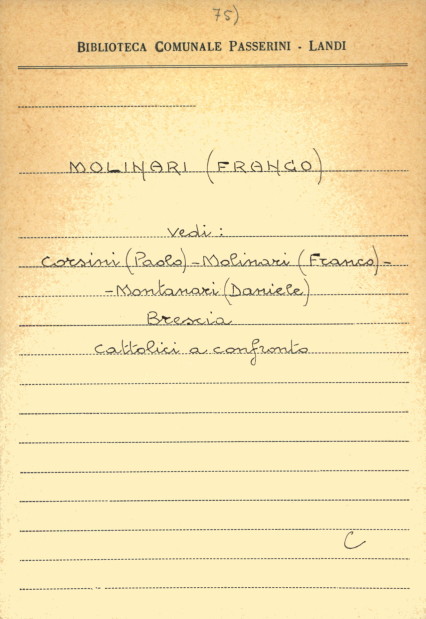 75)
BIBLIOTECA COMUNALE PASSERINI - LANDI
MOLINARI (FRANCO)
vedi :
Corsini (Paolo) - Molinari (Franco) -
- Montanari (Daniele)
Brescia
cattolici a confronto
C